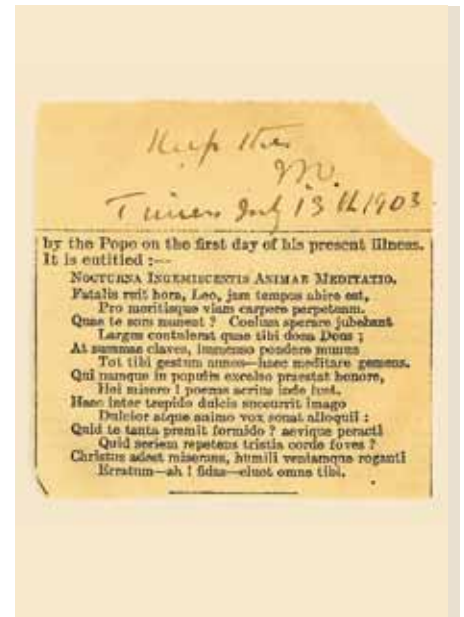 Keep this
M.
Times July 13th 1903
by the Pope on the first day of his present illness.
It is entitled :—
NOCTURNA INGEMISCENTIS ANIMAE MEDITATIO.
Fatalis ruit hora, Leo, jam tempus abire est,
Pro meritisque viam carpere perpetuam.
Quae te sors maneat ? Coelum sperare jubebant
Largus contulerat quae tibi dona Deus ;
At summae claves, immenso pondere munus
Tot tibi gestum annos—haec meditare gemens.
Qui namque in populis excelso praestat honore,
Hei misero ! poenas acrius inde luet.
Haec inter trepido dulcis succurrit imago
Dulcior atque animo vox sonat alloquii :
Quid te tanta premit formido ? aevique peracti
Quid seriem repetens tristia corde foves ?
Christus adest miserans, humili veniamque roganti
Erratum—ah ! fidas—eluet omne tibi.